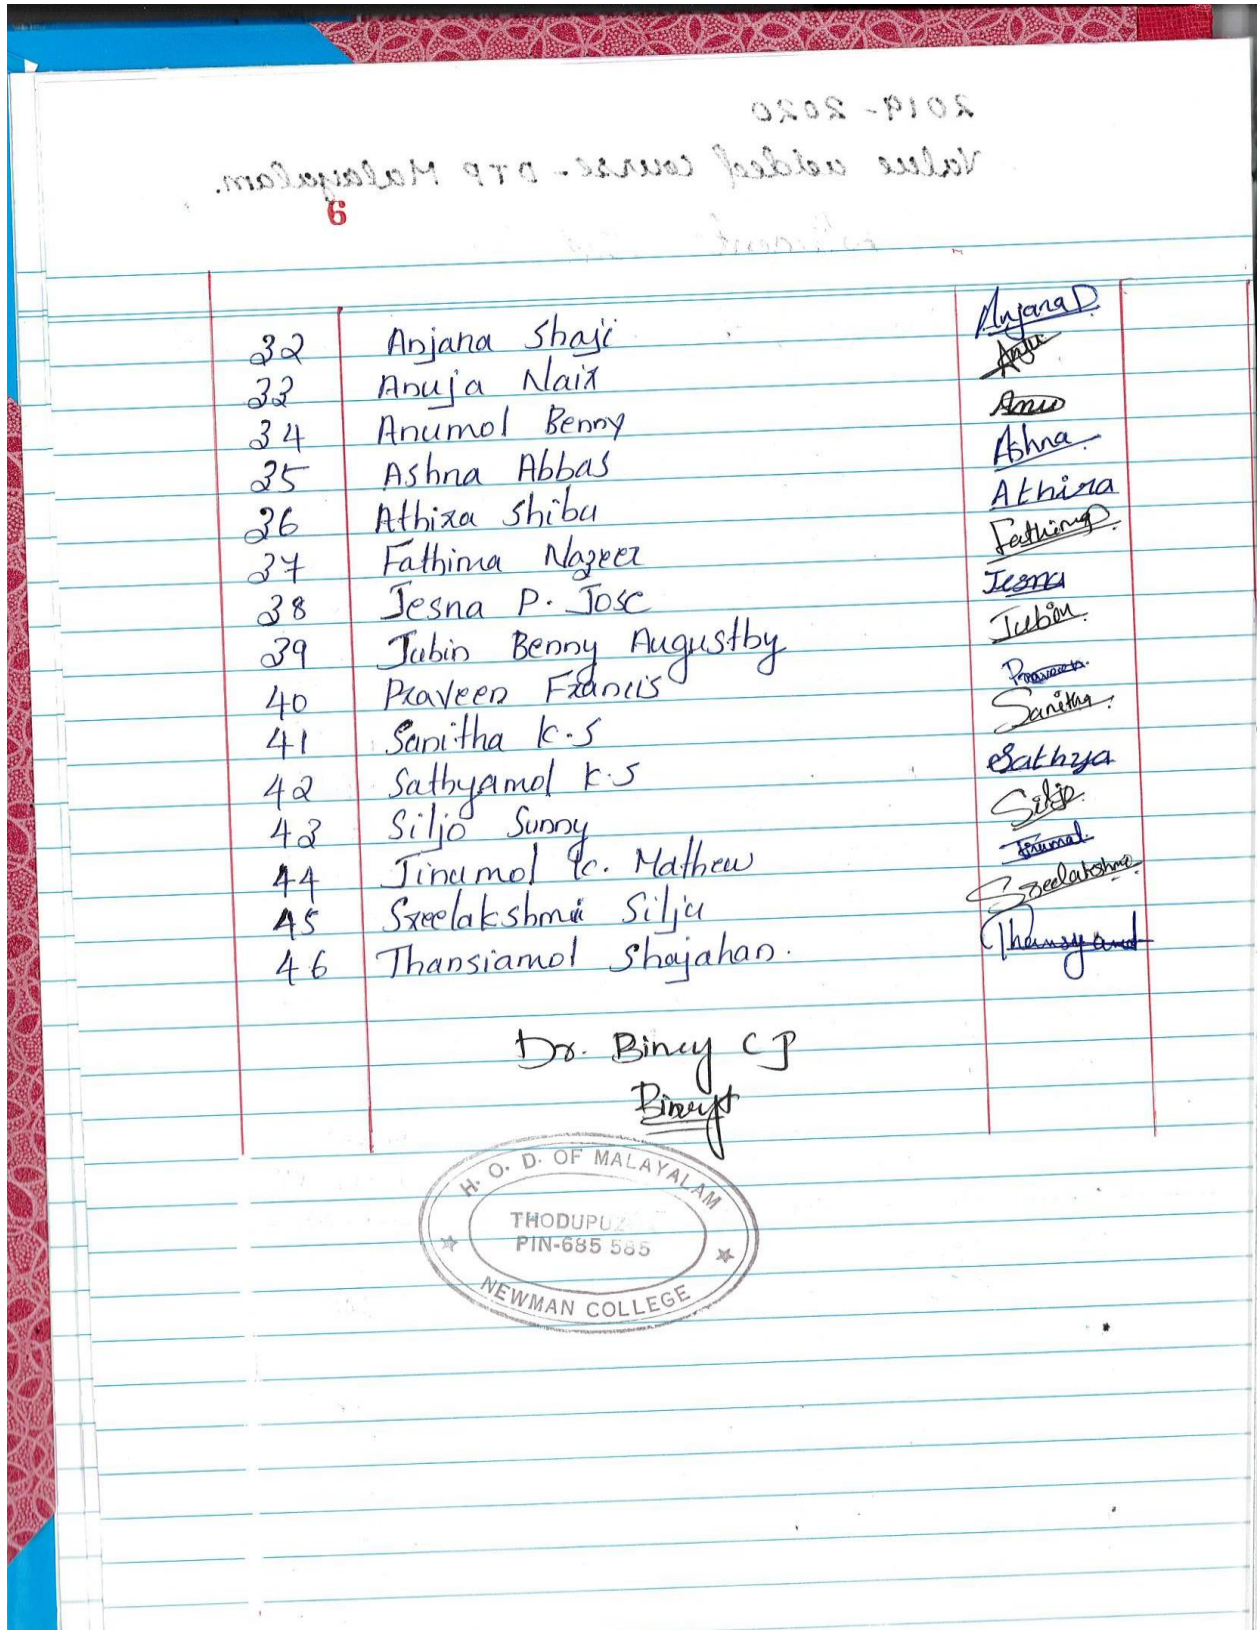 2019-2020
Value added course - DTP Malayalam.
6
32 Anjana Shaji Anjana
33 Anuja Nair Anju
34 Anumol Benny Anu
35 Ashna Abbas Ashna
36 Athira Shibu Athira
37 Fathima Nazeer Fathima
38 Jesna P. Jose Jesna
39 Jubin Benny Augustby Jubin
40 Praveen Francis Praveen
41 Sanitha K.S Sanitha
42 Sathyamol K.S Sathya
43 Siljo Sunny Siljo
44 Jinumol K. Mathew Jinumol
45 Sreelakshmi Silju Sreelakshmi
46 Thansiamol Shajahan. Thansyamol
Dr. Bincy C J
Bincy
H. O. D. OF MALAYALAM
THODUPUZ
PIN-685 585
NEWMAN COLLEGE